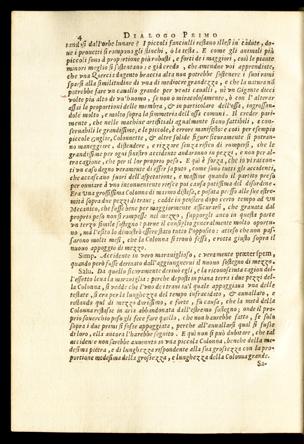 4 DIALOGO PRIMO
tandosi dall'orbe lunare? I piccoli fanciulli restano illesi in cadute, do-
ue i prouetti si rompono gli stinchi, o la testa. E come gli animali più
piccoli sono à proporzione più robusti, e forti de i maggiori, così le piante
minori meglio si sostentano: e già credo, che amendue voi apprendiate,
che vna Quercia dugento braccia alta non potrebbe sostenere i suoi rami
sparsi alla similitudine di vna di mediocre grandezza, e che la natura nō
potrebbe fare vn cauallo grande per venti caualli, nè vn Gigante dieci
volte più alto di vn'huomo, se non o miracolosamente, ò con l'alterar
assai le proporzioni delle membra, & in particolare dell'ossa, ingrossan-
dole molto, e molto sopra la simmetria dell'ossa comuni. Il creder pari-
mente, che nelle machine artifiziali egualmente siano fattibili, e con-
seruabili le grandissime, e le piccole, è errore manifesto: e così per esempio
piccole guglie, Colonnette, & altre solide figure sicuramente si potran-
no maneggiare, distendere, e rizzare senza risico di rompersi, che le
grandissime per ogni sinistro accidente andranno in pezzi, e non per al-
tra cagione, che per il lor proprio peso. E quì è forza, che io vi raccon-
ti vn caso degno veramente di esser saputo, come sono tutti gli accidenti,
che accascano fuori dell'aspettazione, e massime quando il partito preso
per ouuiare à vno inconueniente riesce poi causa potissima del disordine.
Era vna grossissima Colonna di marmo distesa, e posata presso alle sue estre-
mità sopra due pezzi di traue; cadde in pensiero dopo certo tempo ad vn
Mecanico, che fusse bene per maggiormente assicurarsi, che grauata dal
proprio peso non si rompesse nel mezzo, supporgli anco in questa parte
vn terzo simile sostegno: parue il consiglio generalmente molto oportu-
no, mà l'esito lo dimostrò essere stato tutto l'opposito: atteso che non pas-
sarono molti mesi, che la Colonna si trouò fessa, e rotta giusto sopra il
nuouo appoggio di mezzo.
Simp. Accidente in vero marauiglioso, e veramente præter spem,
quando però fusse deriuato dall'aggiungerui il nuouo sostegno di mezzo.
Salu. Da quello sicuramente deriuò egli, e la riconosciuta cagion del-
l'effetto leua la marauiglia: perche deposti in piana terra i due pezzi del-
la Colonna, si vedde che l'vno de i traui sù'l quale appoggiaua vna delle
testate, si era per la lunghezza del tempo infracidato, & auuallato, e
restando quel di mezzo durissimo, e forte, fù causa, che la metà della
Colonna restasse in aria abbandonata dall'estremo sostegno; onde il pro-
prio souerchio peso gli fece fare quello, che non haurebbe fatto, se solo
sopra i due primi si fusse appoggiata, perche all'auuallarsi qual si fusse
di loro, ella ancora l'harebbe seguito. E quì non si può dubitare, che tal
accidente non sarebbe auuenuto in vna piccola Colonna, benche della me-
desima pietra, e di lunghezza rispondente alla sua grossezza con la pro-
portione medesima della grossezza, e lunghezza della Colonna grande.
Sa-